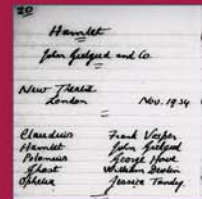 20
Hamlet
John Gielgud and Co.
New Theatre
London Nov. 1934
Claudius Frank Vosper
Hamlet John Gielgud
Polonius George Howe
Ghost William Devlin
Ophelia Jessica Tandy.